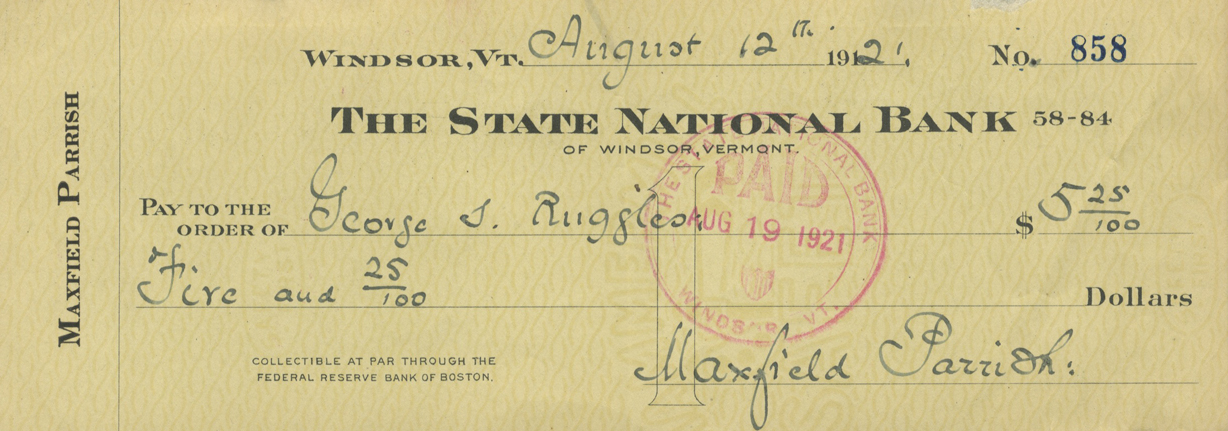 MAXFIELD PARRISH
WINDSOR, VT. August 12th. 1921. No. 858
THE STATE NATIONAL BANK 58-84
OF WINDSOR, VERMONT.
PAY TO THE ORDER OF George S. Ruggles $5 25/100
Five and 25/100 Dollars
THE STATE NATIONAL BANK
PAID
AUG 19 1921
WINDSOR, VT.
COLLECTIBLE AT PAR THROUGH THE
FEDERAL RESERVE BANK OF BOSTON.
Maxfield Parrish: